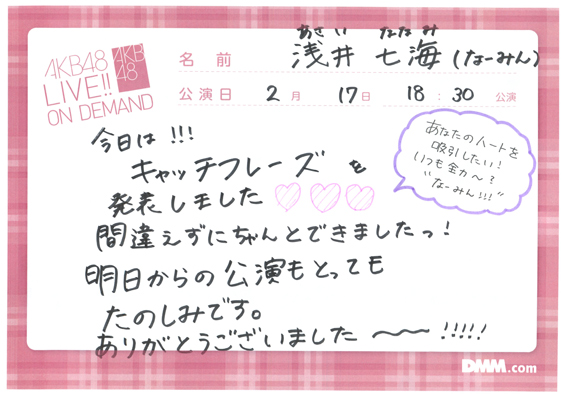 AKB48
LIVE!!
ON DEMAND
AKB
48
名 前
あさ い なな み
浅井 七海 (なーみん)
公演日 2月 17日 18:30 公演
今日は!!!
キャッチフレーズ を
発表しました♡♡♡
間違えずにちゃんとできましたっ!
明日からの公演もとっても
たのしみです。
ありがとうございました 〜〜 !!!!!
あなたのハートを
吸引したい!
いつも全力〜?
"なーみん!!!"
DMM.com